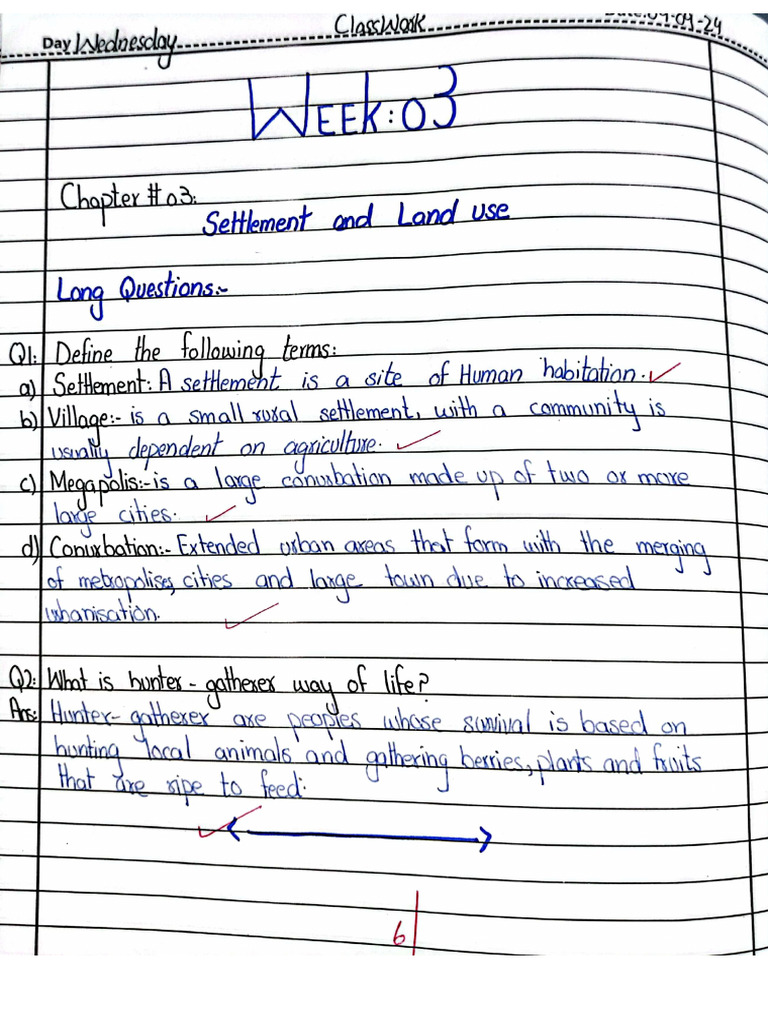 ClassWork
Day Wednesday
-09-24
WEEK:03
Chapter # 03:
Settlement and Land use
Long Questions:-
Q1: Define the following terms:
a) Settlement: A settlement is a site of Human habitation.
b) Village:- is a small rural settlement, with a community is
usually dependent on agriculture.
c) Megapolis:- is a large conurbation made up of two or more
large cities.
d) Conurbation:- Extended urban areas that form with the merging
of metropolises, cities and large town due to increased
urbanisation.
Q2: What is hunter-gatherer way of life?
Ans: Hunter-gatherer are peoples whose survival is based on
hunting local animals and gathering berries, plants and fruits
that are ripe to feed:
6